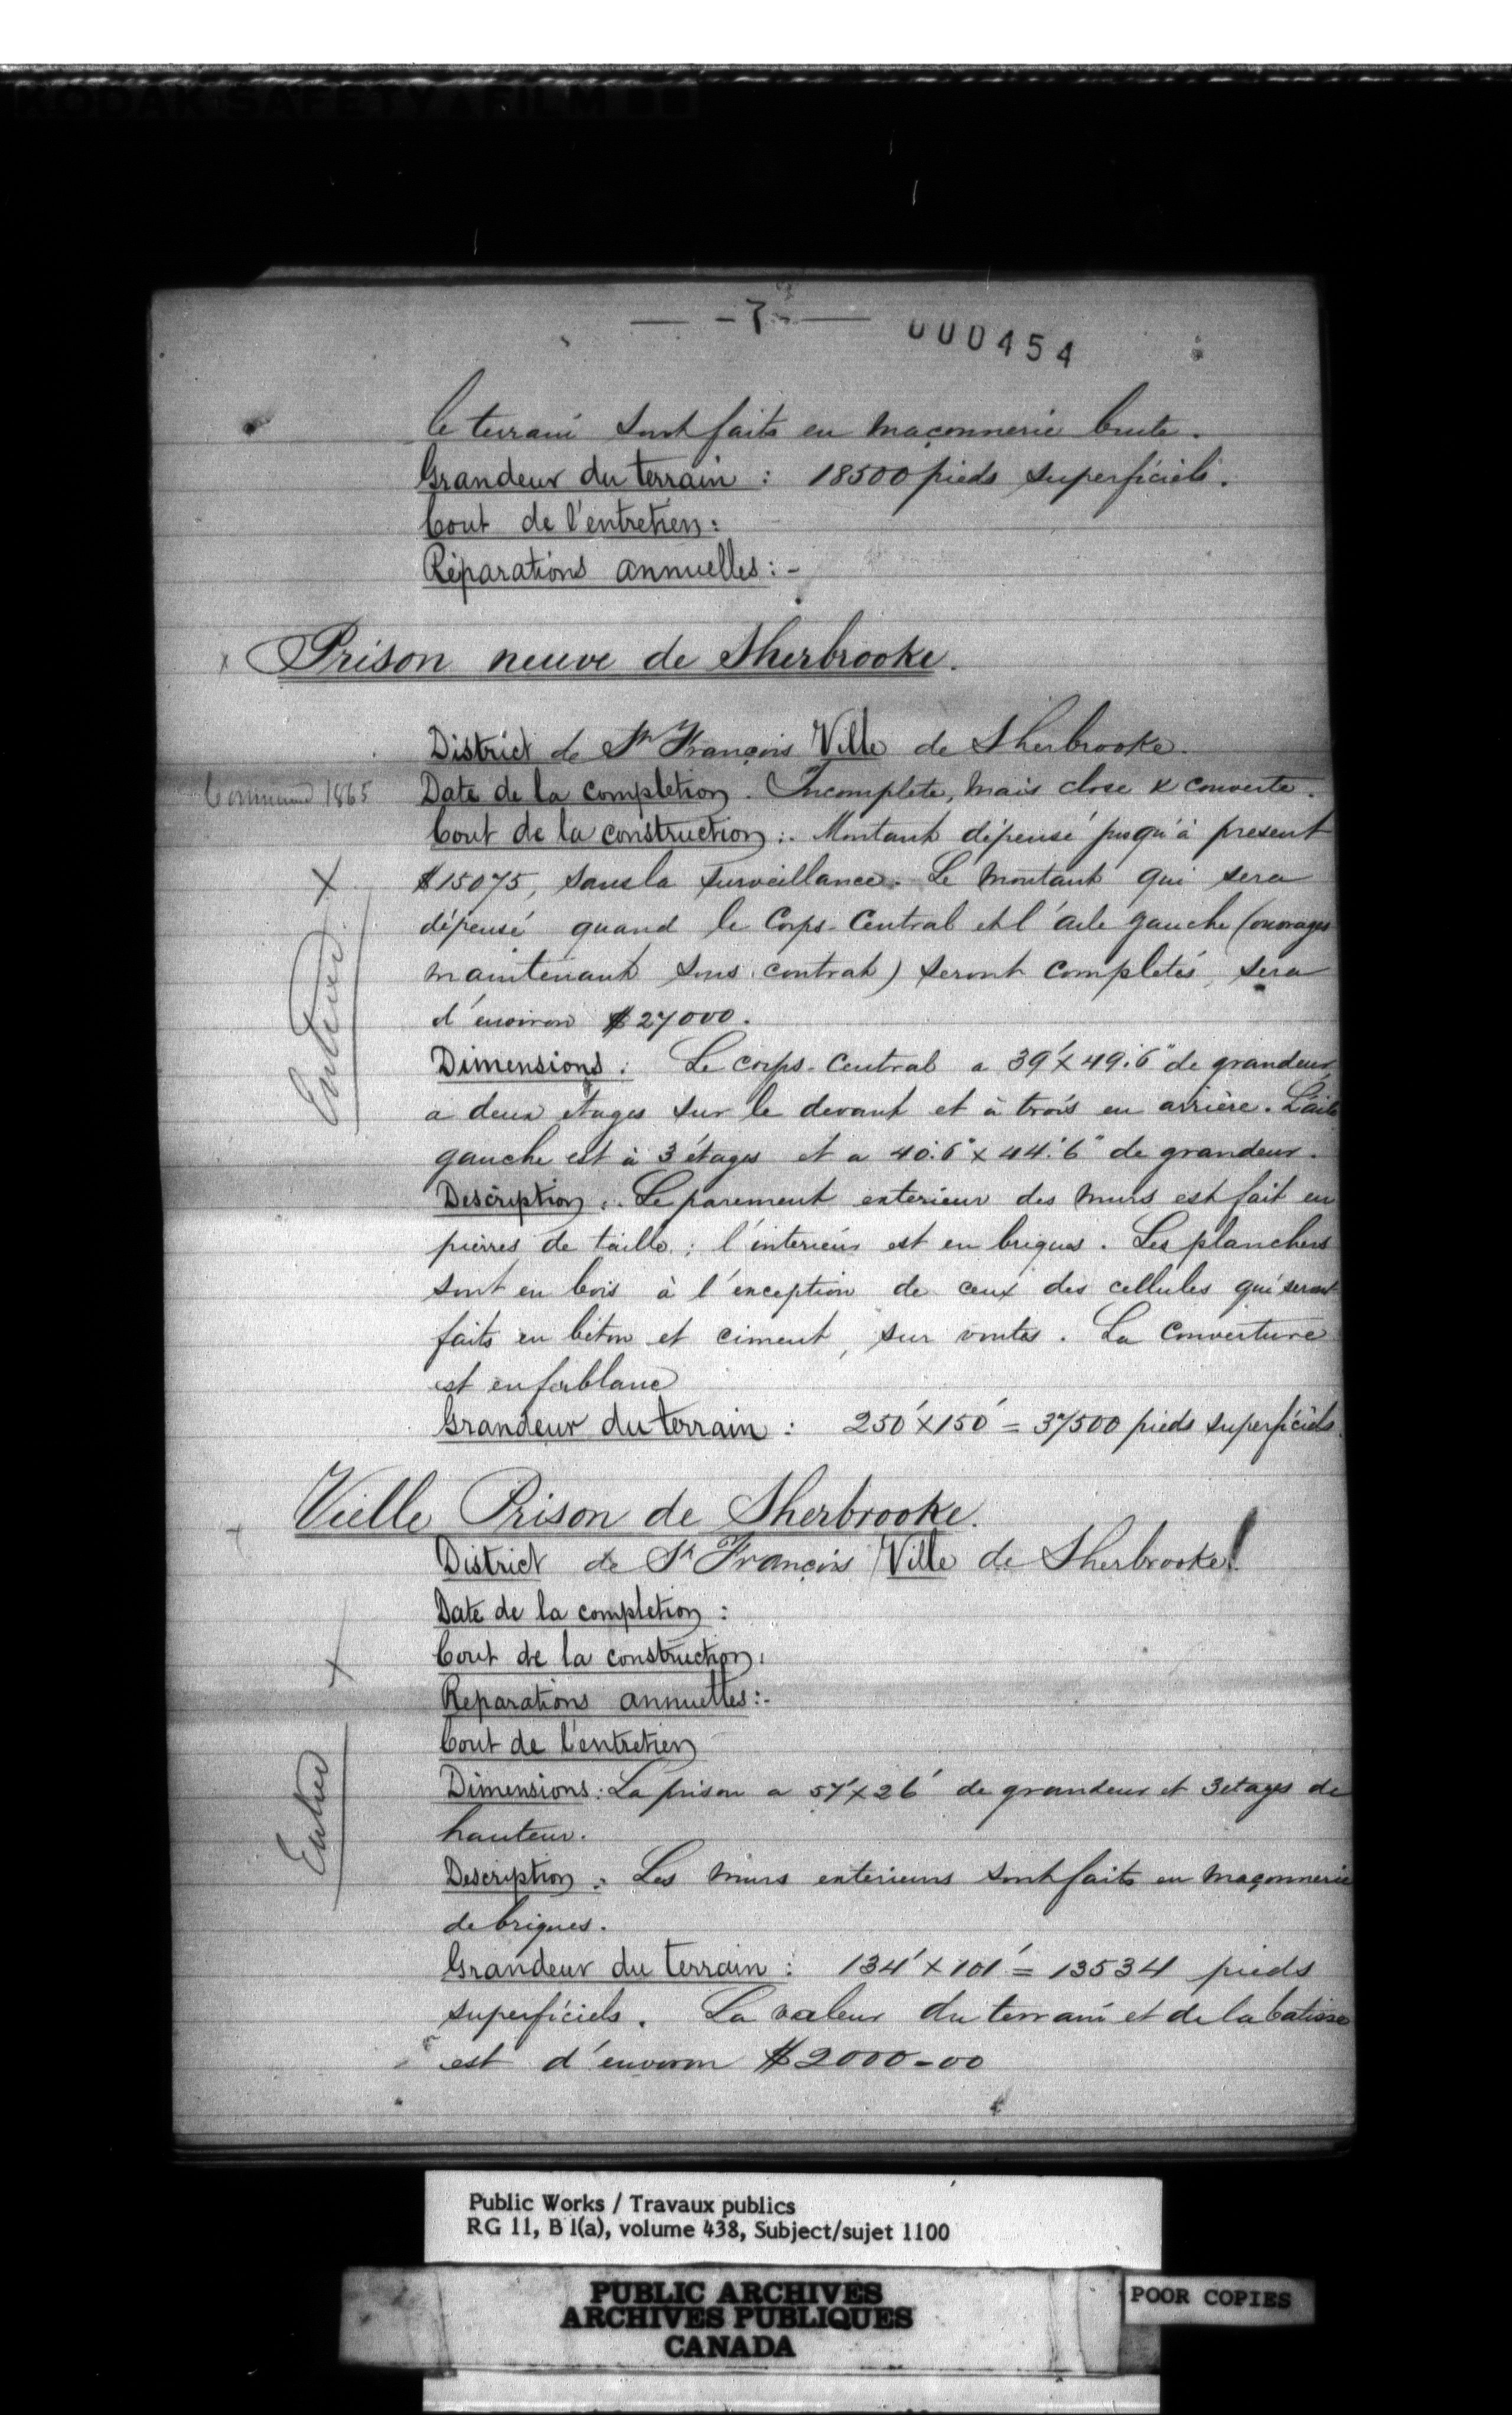 KODAK SAFETY FILM
— - 7 - —
000454
le terrain sont faits en maçonnerie brute.
Grandeur du terrain : 18500 pieds superficiels.
Cout de l'entretien :
Réparations annuelles : -
x Prison neuve de Sherbrooke.
District de St François Ville de Sherbrooke.
Commencé 1865
Date de la completion. Incomplete, mais close & couverte.
Cout de la construction : Montant dépensé jusqu'à present
$15075, sans la surveillance. Le montant qui sera
dépensé quand le Corps-Central et l'aile gauche (ouvrages
maintenant sous contrat) seront completés, sera
d'environ $27000.
x
Entered
Dimensions : Le corps-Central a 39' x 49.'6" de grandeur,
a deux étages sur le devant et à trois en arrière. L'aile
gauche est à 3 étages et a 40.'6" x 44.'6" de grandeur.
Description : Le parement exterieur des murs est fait en
pierres de taille ; l'interieur est en briques. Les planchers
sont en bois à l'exception de ceux des cellules qui seront
faits en béton et ciment, sur voutes. La Couverture
est en ferblanc
Grandeur du terrain : 250' x 150' = 37500 pieds superficiels.
Vielle Prison de Sherbrooke.
District de St François Ville de Sherbrooke.
Date de la completion :
Cout de la construction :
Reparations annuelles : -
Cout de l'entretien
x
Entered
Dimensions : La prison a 57' x 26' de grandeur et 3 etages de
hauteur.
Description : Les murs exterieurs sont faits en maçonnerie
de briques.
Grandeur du terrain : 134' x 101' = 13534 pieds
superficiels. La valeur du terrain et de la batisse
est d'environ $2000-00
Public Works / Travaux publics
RG 11, B 1(a), volume 438, Subject/sujet 1100
PUBLIC ARCHIVES
ARCHIVES PUBLIQUES
CANADA
POOR COPIES